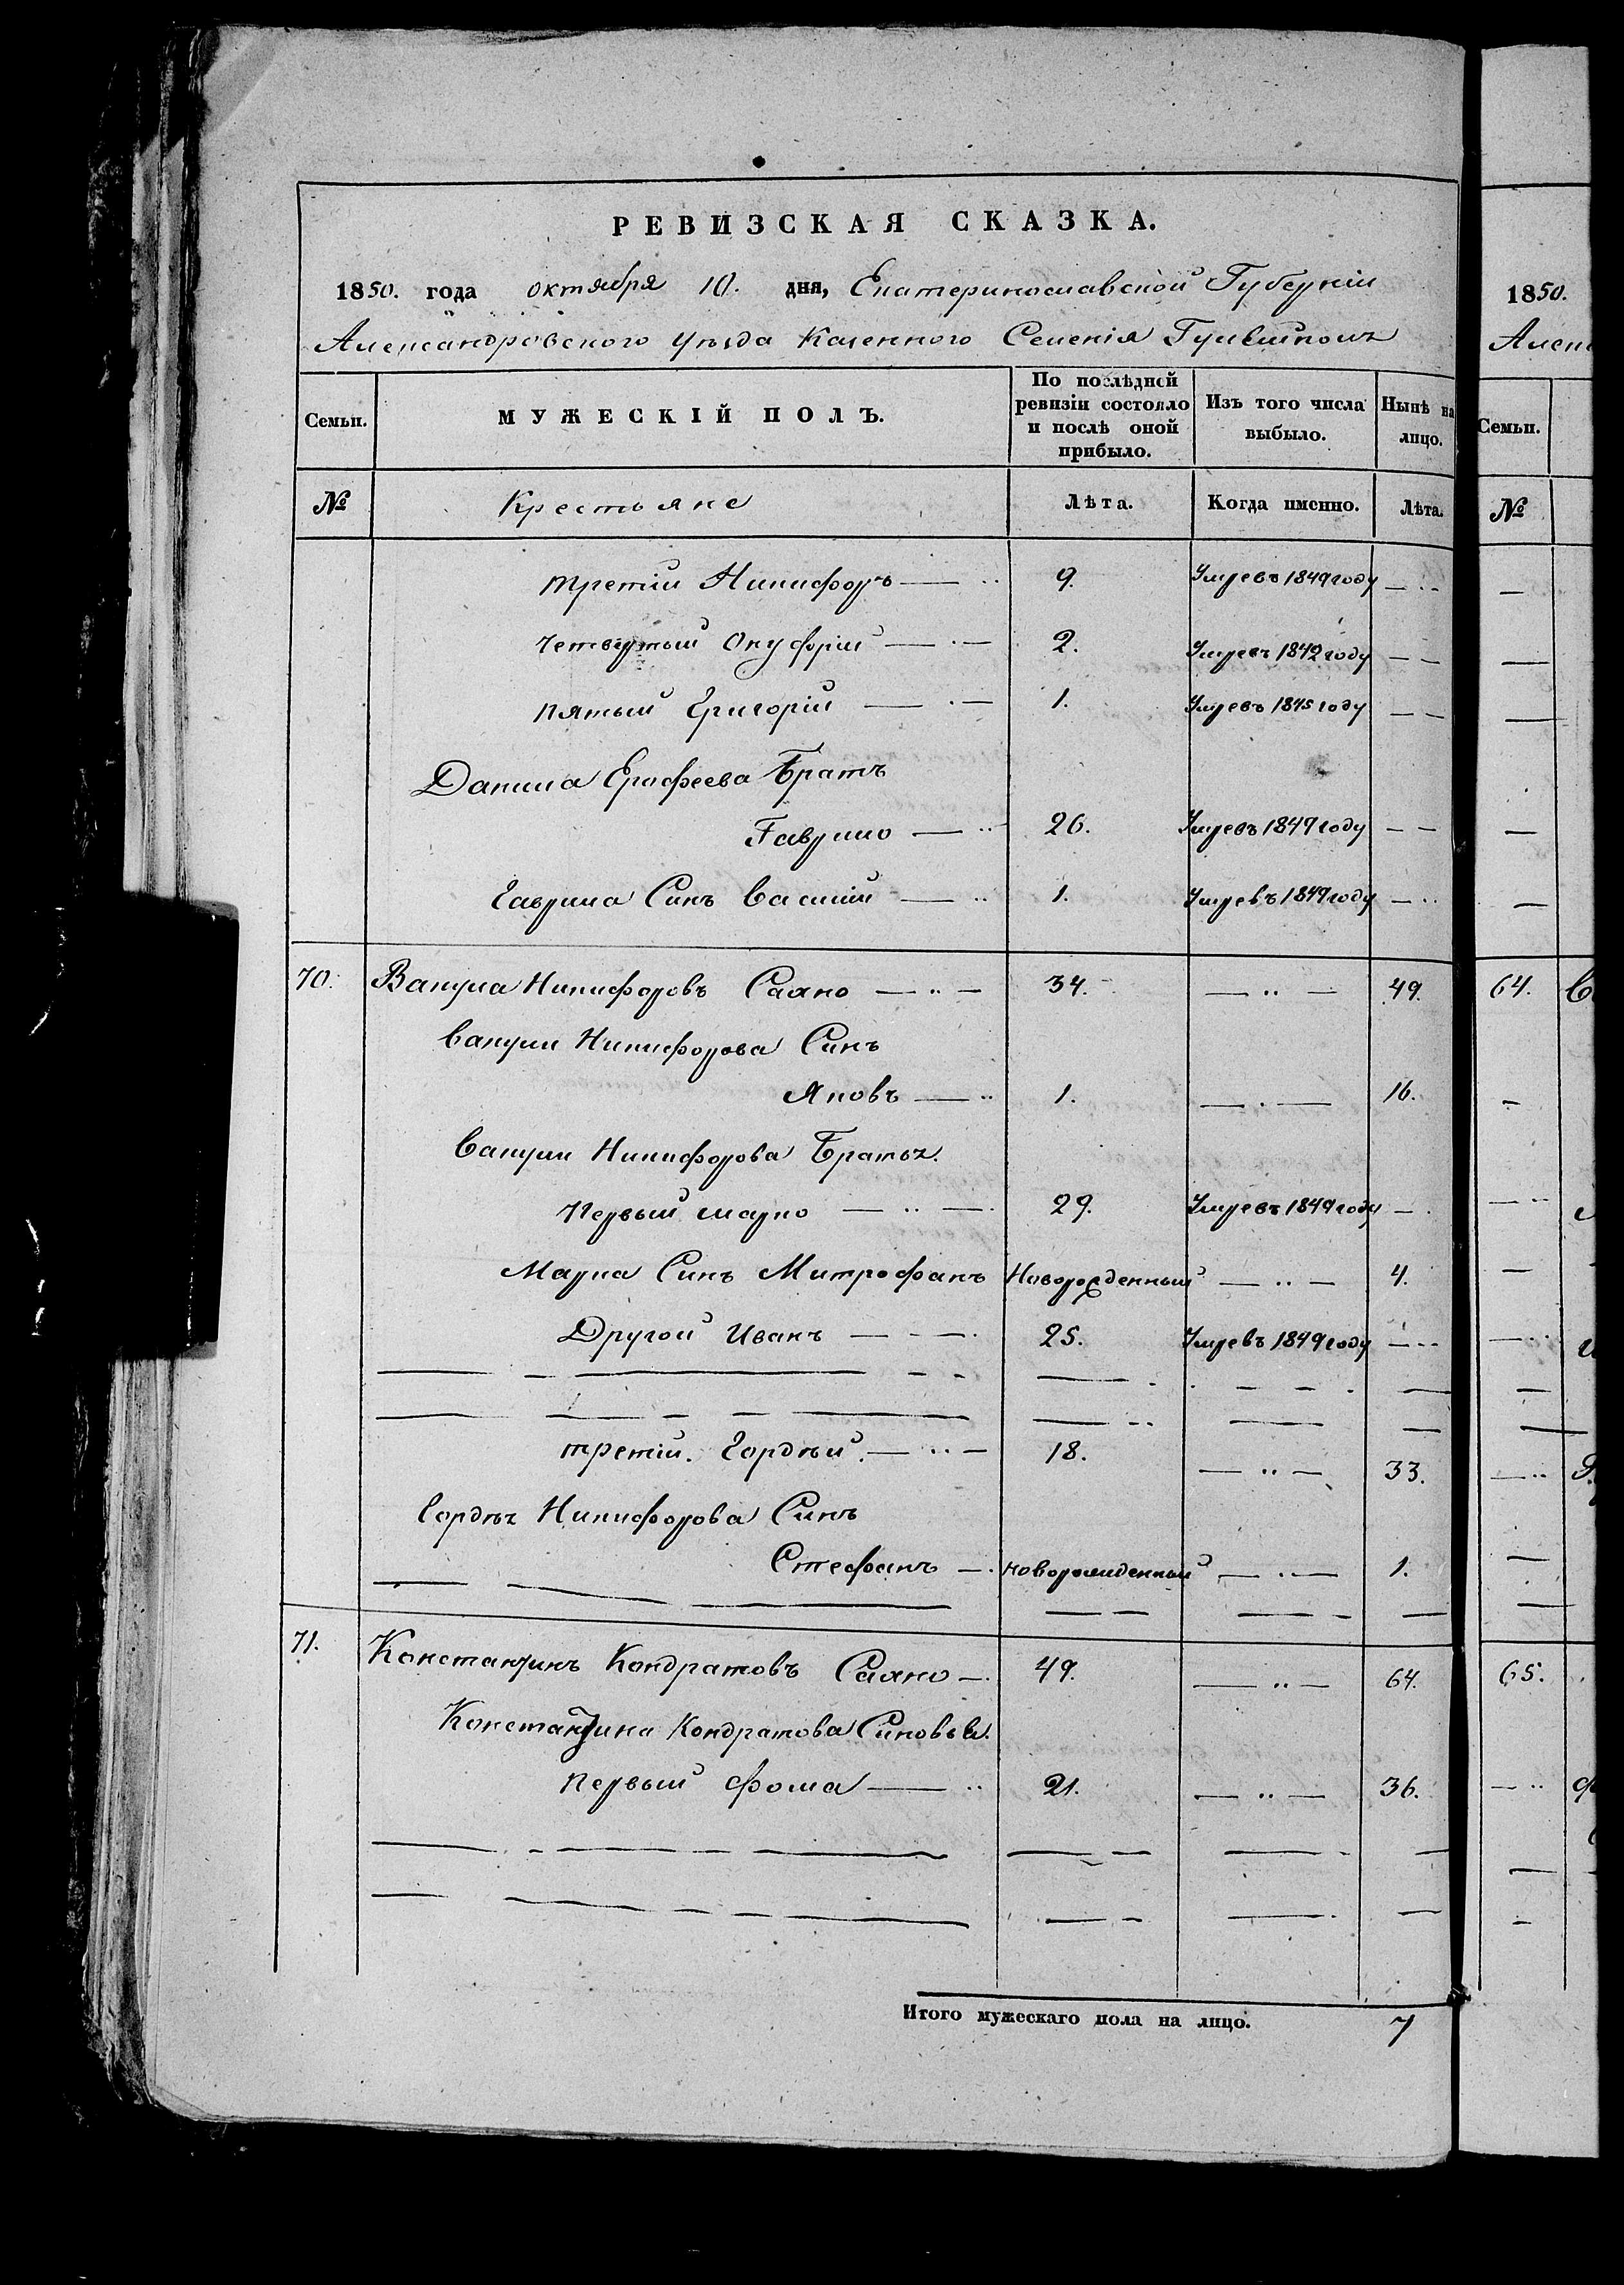 РЕВИЗСКАЯ СКАЗКА.
1850. года октября 10. дня, Екатеринославской Губерніи
Александровского уѣзда Казенного Селенія Гуляйполь
Семьи. МУЖЕСКІЙ ПОЛЪ. По послѣдней ревизіи состояло и послѣ оной прибыло. Изъ того числа выбыло. Нынѣ на лицо.
№ Крестьяне Лѣта. Когда именно. Лѣта.
третій Никифоръ 9. Умре въ 1849 году
четвертый Онуфрій 2. Умре въ 1842 году
пятый Григорій 1. Умре въ 1845 году
Данила Ерофеева Братъ
Гаврило 26. Умре въ 1849 году
Гаврила Синъ Василій 1. Умре въ 1849 году
70. Вакула Никифоровъ Саяно 34. 49.
Вакули Никифорова Синъ
Яковъ 1. 16.
Вакули Никифорова Братья.
Первый марко 29. Умре въ 1849 году
Марка Синъ Митрофанъ Новорожденный 4.
Другой Иванъ 25. Умре въ 1849 году
третій. Гордѣй. 18. 33.
Гордѣя Никифорова Синъ
Стефанъ новорожденный 1.
71. Константинъ Кондратовъ Саяно 49. 64.
Константина Кондратова Синовья.
первый фома 21. 36.
Итого мужескаго пола на лицо. 7
1850.
Семьи.
№
64.
65.